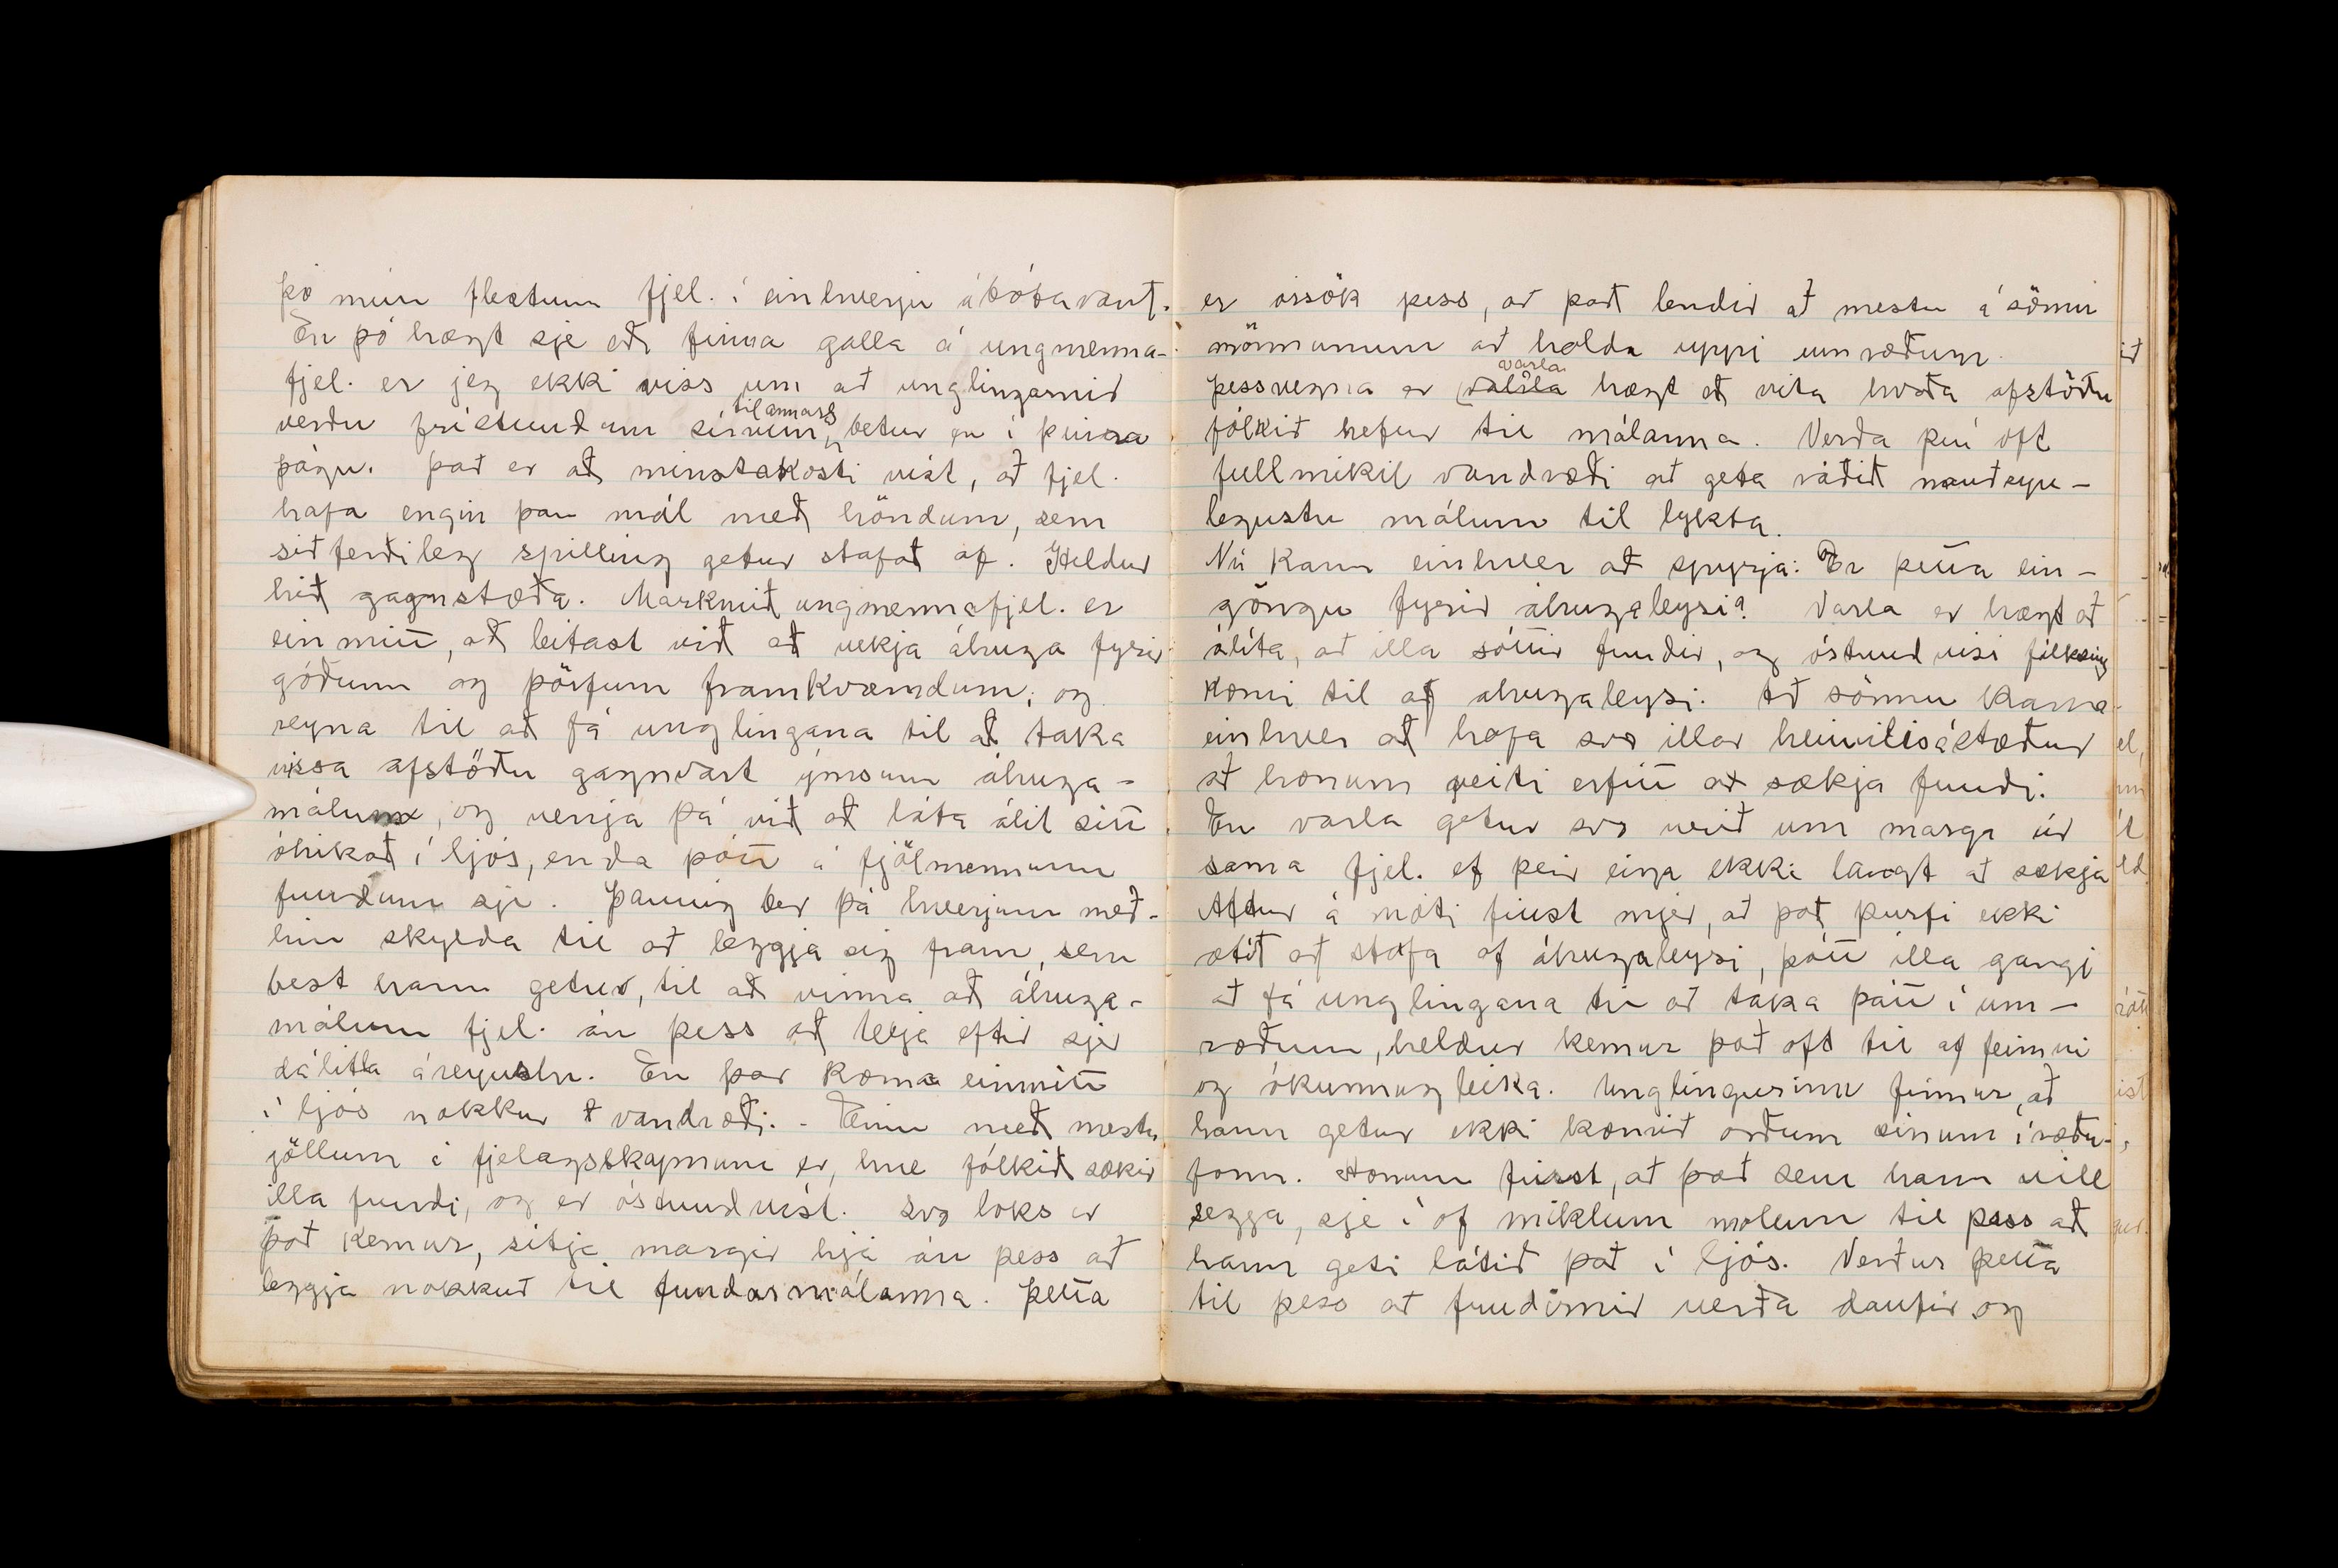 þó mun flestum fjel. í einhverju ábótavant.
En þó hægt sje að finna galla á ungmenna-
fjel. er jeg ekki viss um að unglingarnir
verðu frístundum sínum til annars betur en í þeirra
þágu. Það er að minstakosti víst, að fjel.
hafa engin þau mál með höndum, sem
siðferðileg spilling getur stafað af. Heldur
hið gagnstæða. Markmið ungmennafjel. er
einmitt, að leitast við að vekja áhuga fyrir
góðum og þörfum framkvæmdum, og
reyna til að fá unglingana til að taka
vissa afstöðu gagnvart ýmsum áhuga-
málum, og venja þá við að láta álit sitt
óhikað í ljós, enda þótt á fjölmennum
fundum sje. Þannig ber þá hverjum með-
lim skylda til að leggja sig fram, sem
best hann getur, til að vinna að áhuga-
málum fjel. án þess að telja eftir sjer
dálitla áreynslu. En þar koma einmitt
í ljós nokkur vandræði. - Einn með mestu
göllum í fjelagsskapnum er, hve fólkið sækir
illa fundi, og er óstundvíst. Svo loks er
það kemur, sitja margir hjá án þess að
leggja nokkuð til fundarmálanna. Þetta
er orsök þess, að það lendir að mestu á sömu
mönnunum að halda uppi umræðum.
þessvegna er varla hægt að vita hvaða afstöðu
fólkið hefur til málanna. Verða því oft
fullmikil vandræði að geta ráðið nauðsyn-
legustu málum til lykta.
Nú kann einhver að spyrja: Er þetta ein-
göngu fyrir áhugaleysi? Varla er hægt að
álíta, að illa sóttir fundir, og óstundvísi fólksins
komi til af áhugaleysi. Að sönnu kann
einhver að hafa svo illar heimilisástæður
að honum veiti erfitt að sækja fundi.
En varla getur svo verið um marga úr
sama fjel. ef þeir eiga ekki langt að sækja
Aftur á móti finst mjer, að það þurfi ekki
ætíð að stafa af áhugaleysi, þótt illa gangi
að fá unglingana til að taka þátt í um-
ræðum, heldur kemur það oft til af feimni
og ókunnugleika. Unglingurinn finnur, að
hann getur ekki komið orðum sínum í ræðu-
form. Honum finst, að það sem hann vill
segja, sje í of miklum molum til þess að
hann geti látið það í ljós. Verður þetta
til þess að fundirnir verða daufir og